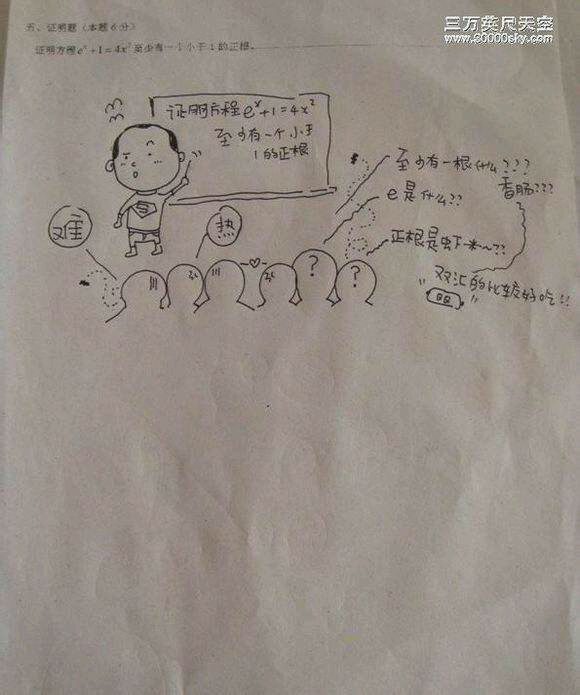 三万英尺天空
www.30000sky.com
五、证明题（本题6分）
证明方程eˣ+1=4x²至少有一个小于1的正根。
证明方程eˣ+1=4x²
至少有一个小于
1的正根
至少有一根什么???
香肠???
e是什么??
正根是虾米~??
难
热
?
?
"双汇的比较好吃!!"